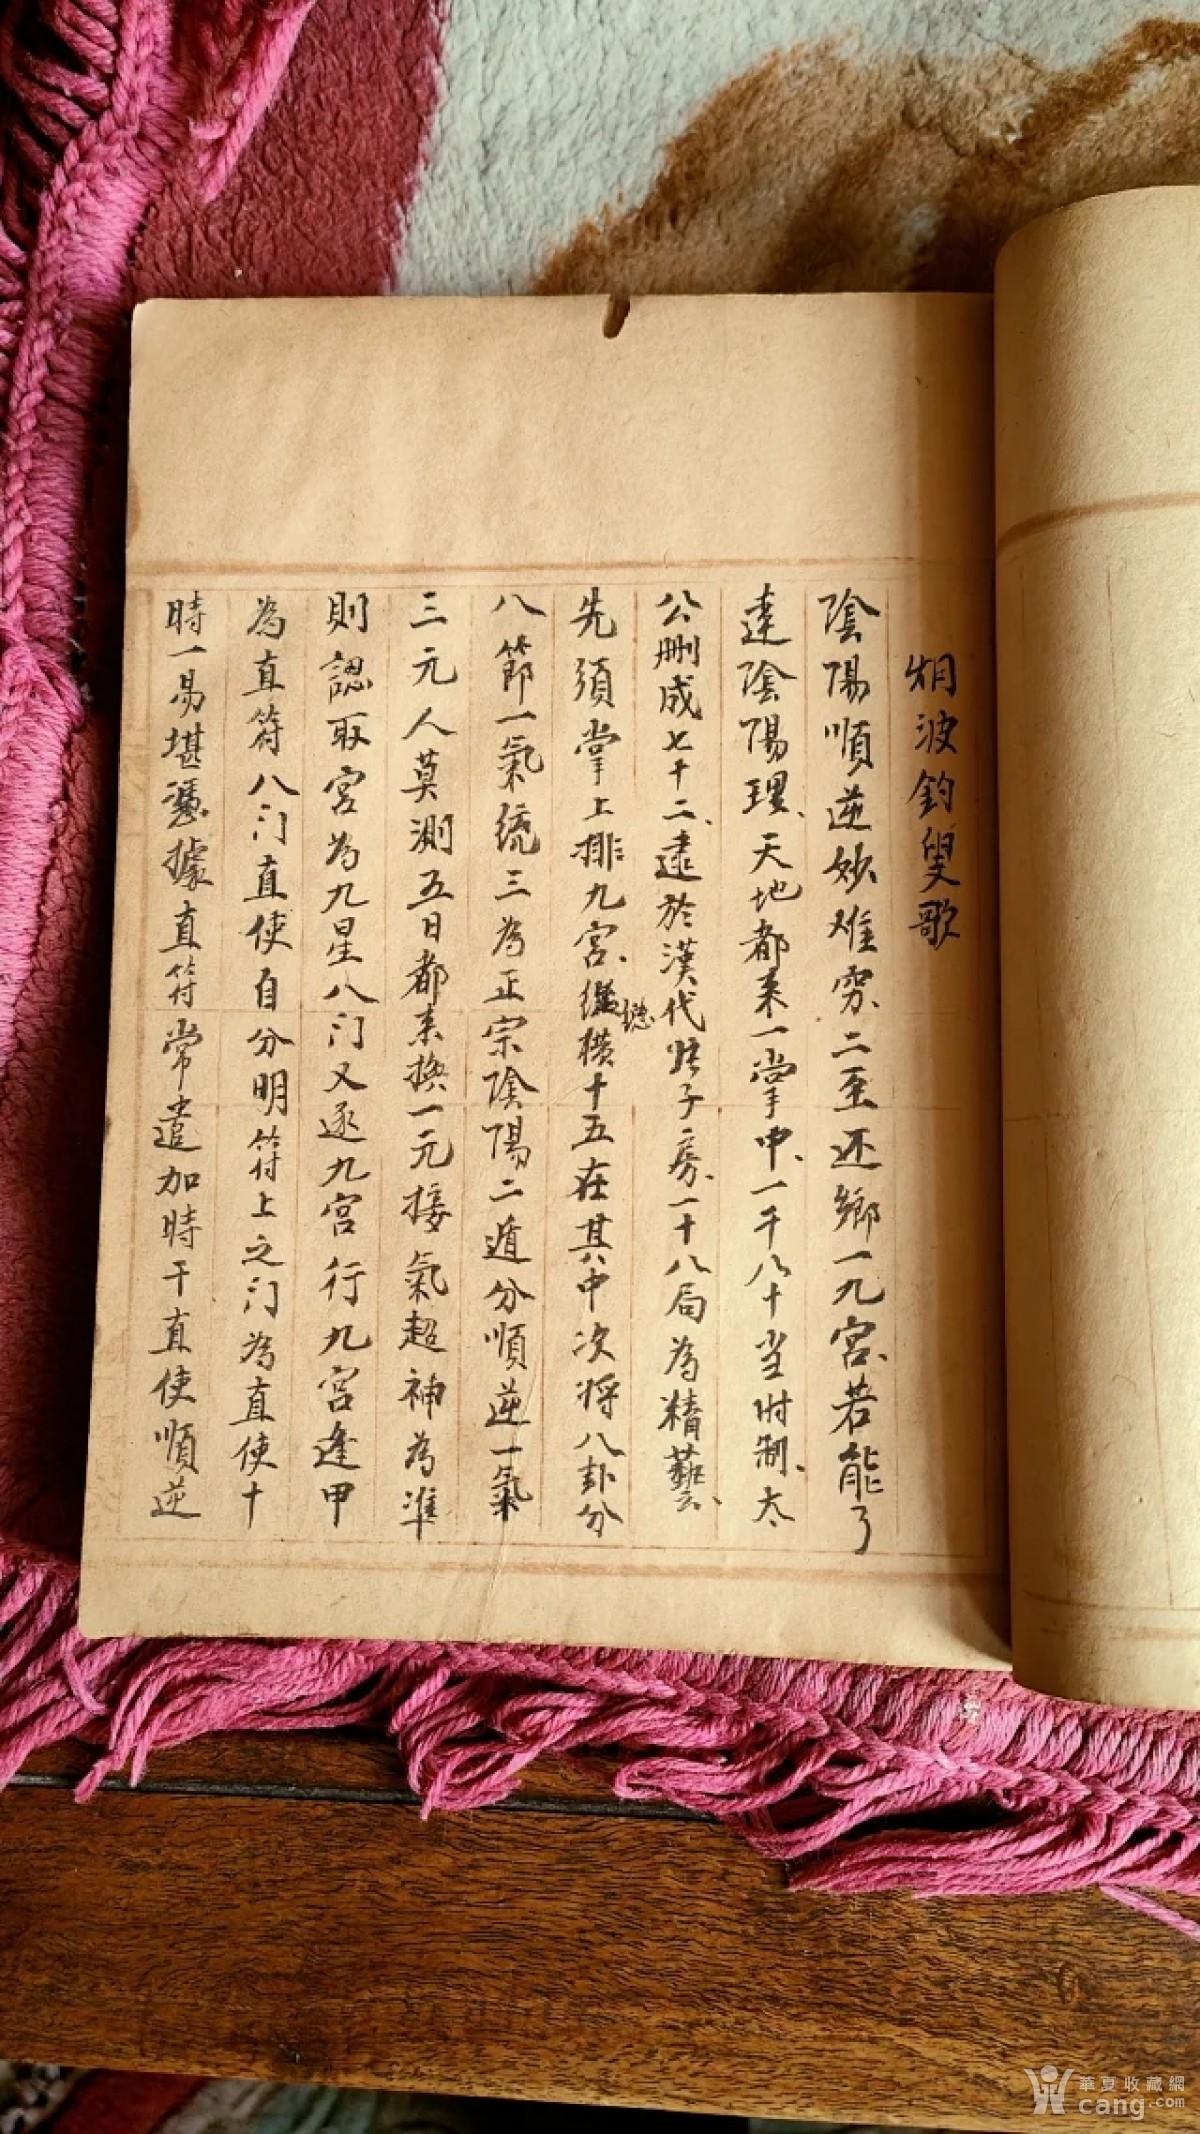 烟波釣叟歌
陰陽順逆妙难穷、二至还鄉一九宮、若能了
達陰陽理、天地都来一掌中、一千八十当时制、太
公删成七十二、逮於漢代張子房、一十八局為精藝、
先須掌上排九宮、縱橫十五在其中次将八卦分
八節一氣統三為正宗陰陽二遁分順逆一氣
三元人莫測五日都来換一元接氣超神為准
則認取宮為九星八门又逐九宮行九宮逢甲
為直符八门直使自分明符上之门為直使十
時一易堪憑據直符常遣加時干直使順逆
華夏收藏網
cang.com